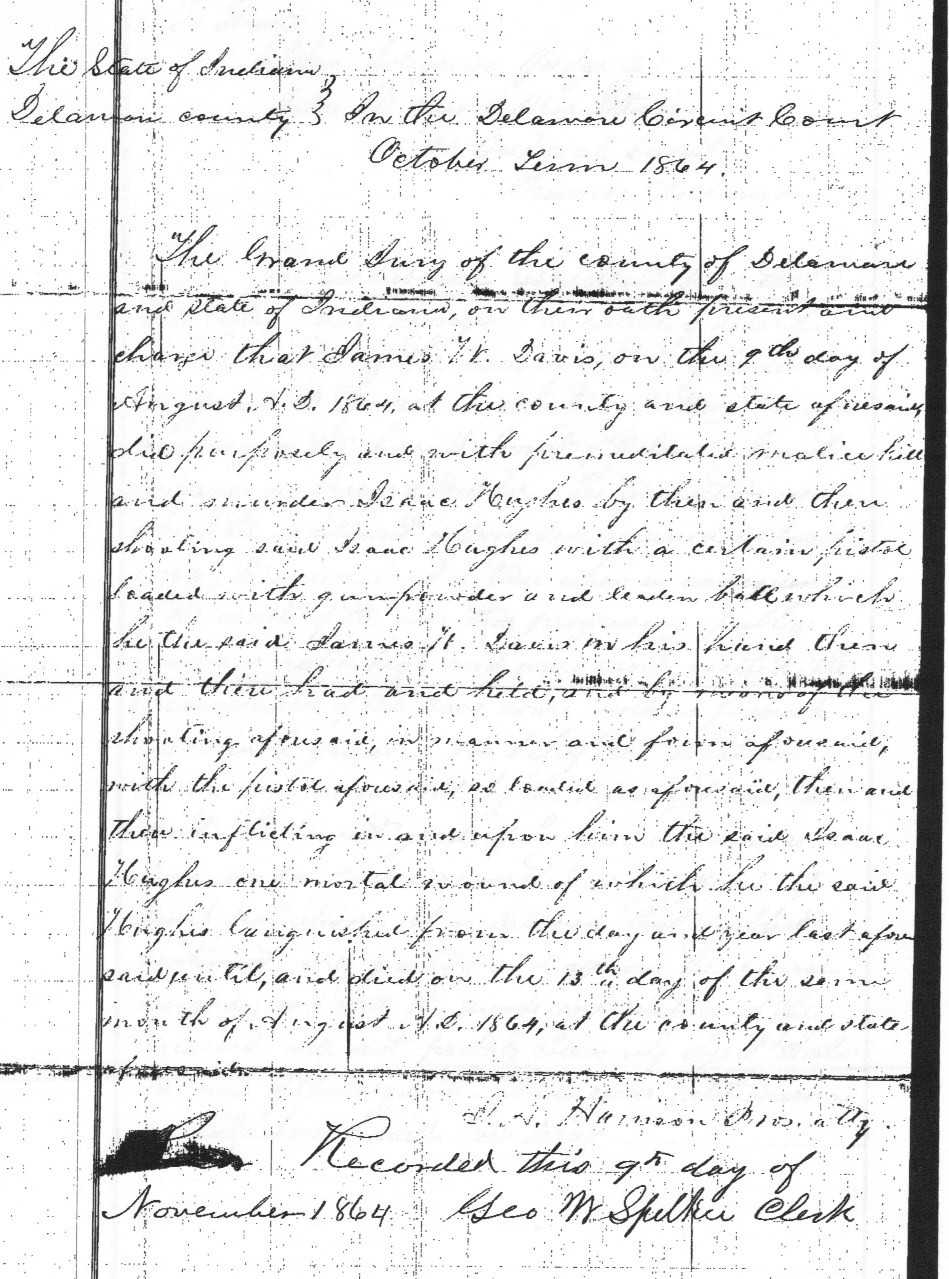 The State of Indiana
Delaware county } In the Delaware Circuit Court
October Term 1864.
"The Grand Jury of the county of Delaware
and state of Indiana, on their oath present and
charge that James W. Davis, on the 9th day of
August, A.D. 1864, at the county and state aforesaid,
did purposely and with premeditated malice kill
and murder Isaac Hughes by then and there
shooting said Isaac Hughes with a certain pistol
loaded with gunpowder and leaden ball which
he the said James W. Davis in his hand then
and there had and held, and by means of the
shooting aforesaid, in manner and form aforesaid,
with the pistol aforesaid, so loaded as aforesaid, then and
there inflicting in and upon him the said Isaac
Hughes one mortal wound of which he the said
Hughes languished from the day and year last afore
said until, and died on the 13th day of the same
month of August A.D. 1864, at the county and state
aforesaid.
Harrison Pros. atty.
Recorded this 9th day of
November 1864 Geo W Spilker Clerk